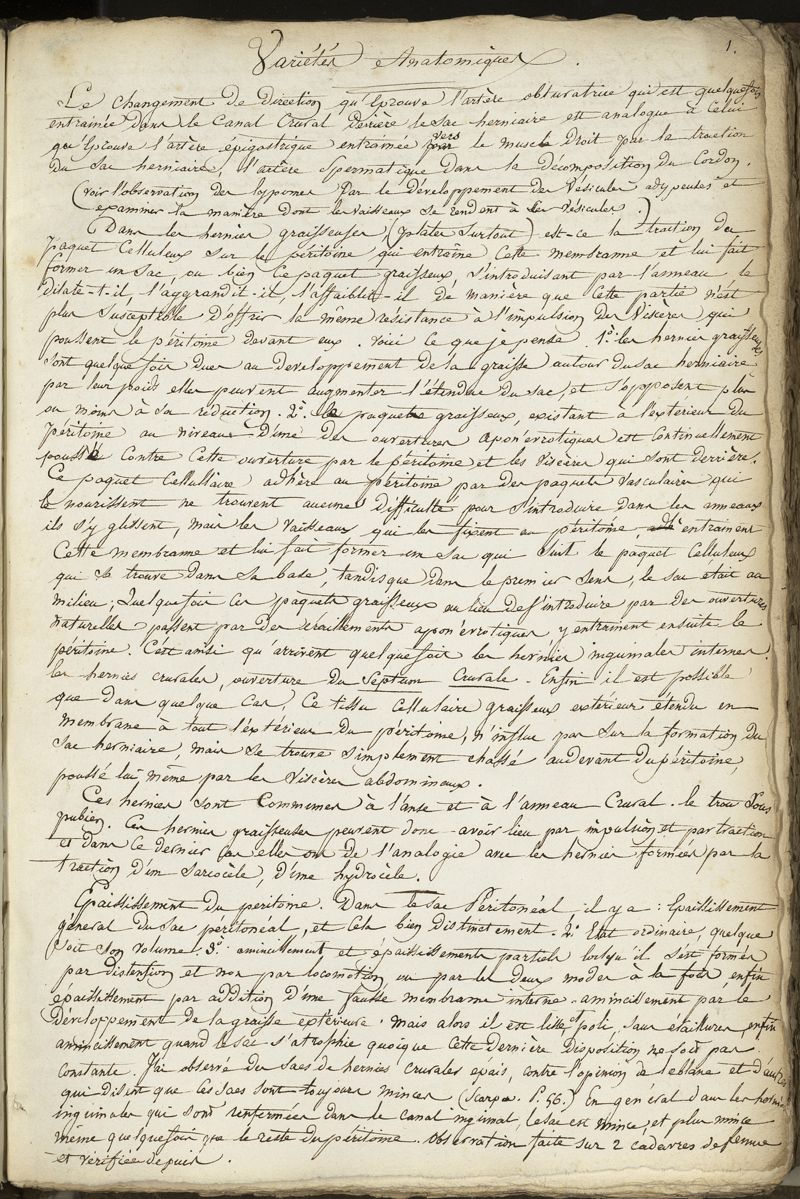 1.
Variétés Anatomiques.
Le changement de direction qu'éprouve l'artère obturatrice qui est quelquefois
entrainée dans le Canal Crural derrière le Sac herniaire est analogue à Celui
qu'éprouve l'artère épigastrique entrainée vers le muscle droit par la traction
du Sac herniaire, l'artère Spermatique dans la décomposition du Cordon.
(Voir l'observation des lypomes par le développement des Vésicules adypeuses et
examiner la manière dont les vaisseaux se rendent à ces vésicules.)
Dans les hernies graisseuses (plates Surtout) est-ce la traction du
paquet Celluleux sur le péritoine qui entraîne Cette membranne et lui fait
former un Sac, ou bien Ce paquet graisseux s'introduisant par l'anneau le
dilate-t-il, l'aggrandit-il, l'affaiblit-il de manière que Cette partie n'est
plus Susceptible d'offrir la même résistance à l'impulsion des Viscères qui
poussent le péritoine devant eux. Voici ce que je pense 1º: les hernies graisseuses
sont quelquefois dues au développement de la graisse autour du sac herniaire
par leur poids elles peuvent augmenter l'étendue du sac, et s'opposent plus
ou moins à sa réduction. 2º. le paquet graisseux, existant à l'extérieur du
péritoine au niveau d'une des ouvertures aponévrotiques est continuellement
poussé contre Cette ouverture par le péritoine et les Viscères qui sont derrière.
Ce paquet Cellullaire adhère au péritoine par des paquets vasculaires qui
le nourrissent ne trouvent aucune difficulté pour s'introduire dans les anneaux
ils s'y glissent, mais les Vaisseaux qui les fixent au péritoine, entrainent
Cette membranne et lui fait former un Sac qui suit le paquet Celluleux
qui se trouve dans sa base, tandisque dans le premier Sens, le sac était au
milieu; Quelquefois ces paquets graisseux au lieu de s'introduire par des ouvertures
naturelles passent par des éraillements aponévrotiques, y entrainent ensuite le
péritoine. C'est ainsi qu'arrivent quelquefois les hernies inguinales internes.
les hernies crurales, ouverture du Septum Crurale. Enfin il est possible
que dans quelque Cas, Ce tissu Cellulaire graisseux extérieur étendu en
membrane à tout l'extérieur du péritoine, n'influe pas sur la formation du
Sac herniaire, mais Se trouve Simplement chassé audevant du péritoine,
poussé lui même par les Viscères abdominaux.
Ces hernies sont Communes à l'anse et à l'anneau Crural. le trou Sous
pubien. Ces hernies graisseuses peuvent donc avoir lieu par impulsion et par traction
et dans ce dernier Cas elles ont de l'analogie avec les hernies formées par la
traction d'un Sarcocèle, d'une hydrocèle.
Epaississement du péritoine. Dans le sac Péritonéal, il y a: Epaississement
général du Sac péritonéal, et Cela bien distinctement. 2º Etat ordinaire, quelque
soit son volume. 3º. amincissement, et épaississements partiels lorsqu'il s'est formé
par distension et non par locomotion ou par les deux modes à la fois, enfin
épaississement par addition d'une fausse membrane interne. amincissement par le
développement de la graisse extérieure. mais alors il est lisse et poli, sans éraillures, enfin
amincissement quand le sac s'atrophie quoique Cette dernière disposition ne soit pas
constante. J'ai observé des sacs de hernies Crurales épais, contre l'opinion de leblanc et d'autres
qui disent que Ces sacs sont toujours minces (Scarpa. P. 56.) En général dans les hernies
inguinales qui sont renfermées dans le canal inguinal, le sac est mince, et plus mince
même quelquefois que le reste du péritoine. Observation faite sur 2 cadavres de femme
et vérifiée depuis.